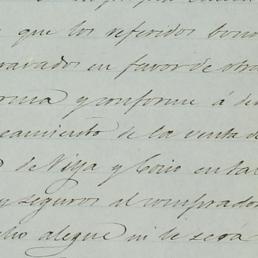 que los referidos bono
ravados en favor de otro
orma y conforme á de
eamiento de la venta de
de Niya y Coio en tal
y seguros al comprador
cho alegue ni le será